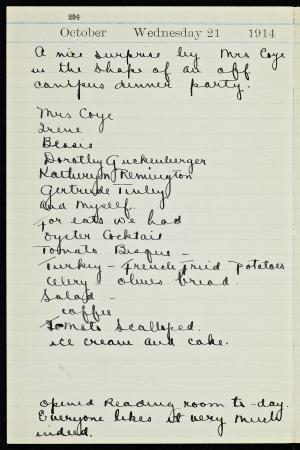 294
October Wednesday 21 1914
A nice surprise by Mrs Coye
in the shape of an off
campus dinner party.
Mrs Coye
Irene
Bessie
Dorothy Guckenberger
Kathryn Remington
Gertrude Tinley
and Myself.
For eats we had
Oyster Cocktail
Tomato Bisque -
Turkey - French Fried Potatoes
Celery olives bread.
Salad -
coffee
Tomato Scalloped.
ice cream and cake.
opened Reading room to-day.
Everyone likes it very much
indeed.